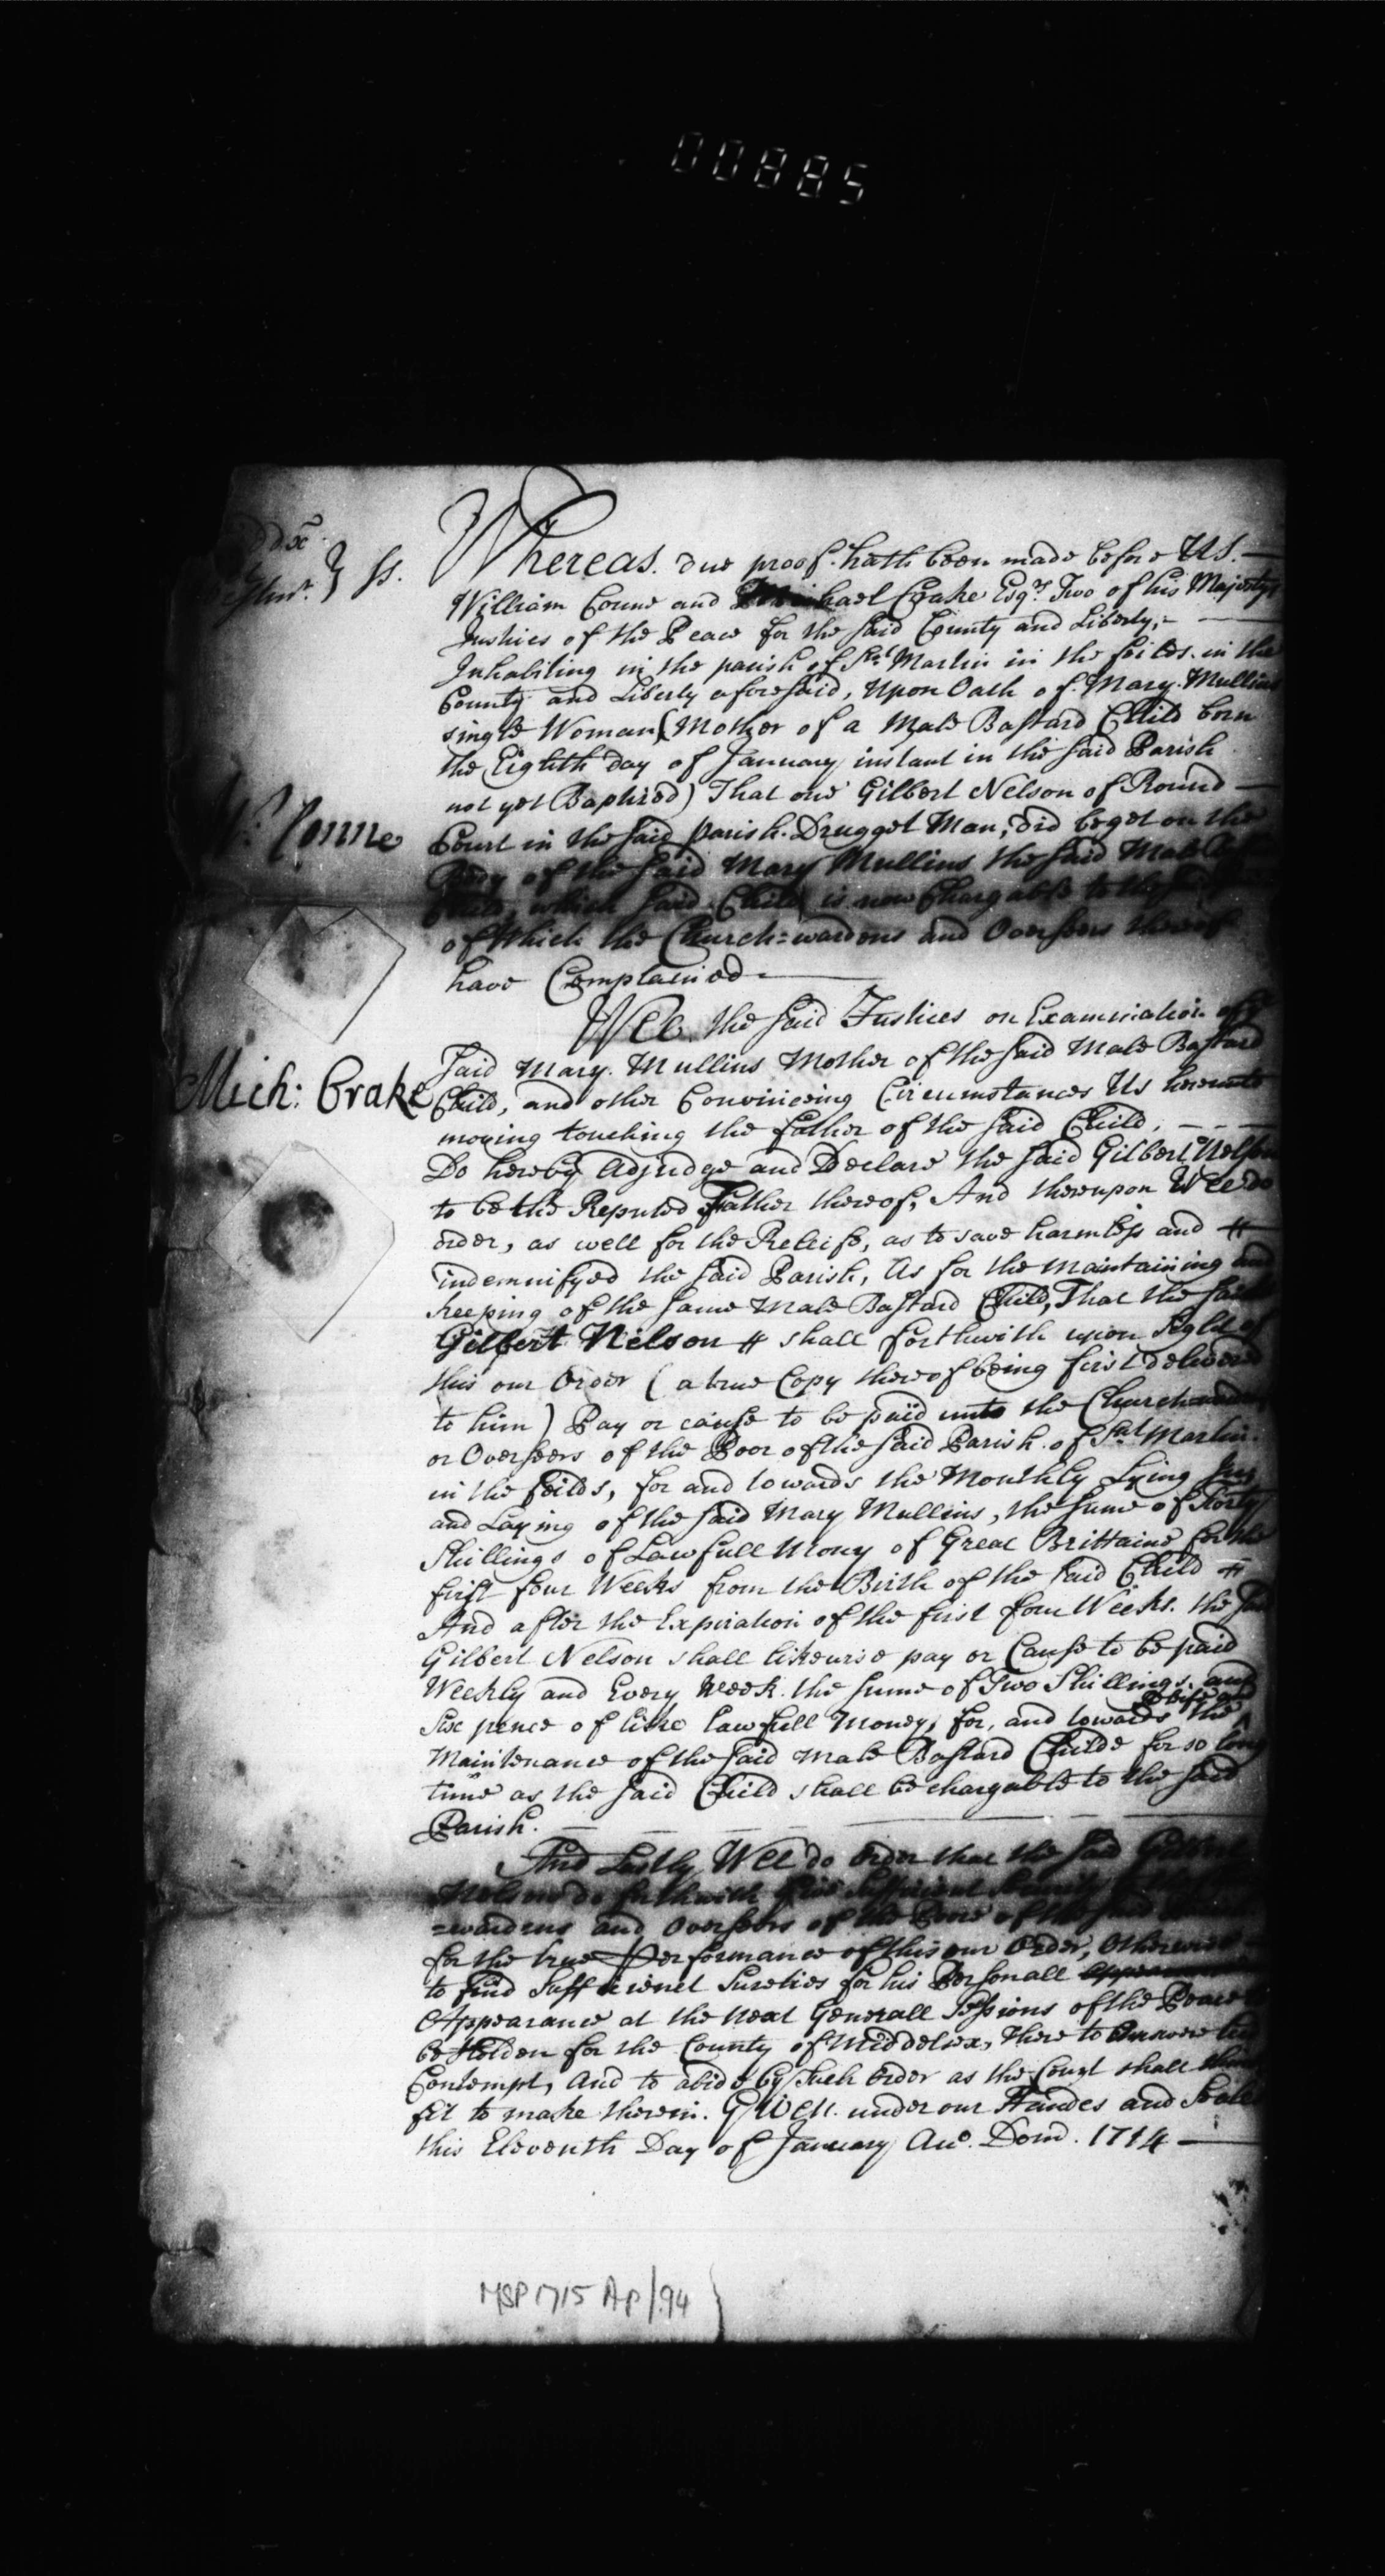 00885
ddx
Whereas. due proof. hath been made before US.
Westmr. } ss.
William Conne and Michael Crake Esqrs. Two of his Majestys
Justices of the Peace for the said County and Liberty,
Inhabiting in the parish of St. Martin in the feilds. in the
County and Liberty aforesaid, Upon Oath of Mary Mullins
single Woman (Mother of a Male Bastard Child born
the Eighth day of January instant in the said Parish
not yet Baptized) That one Gilbert Nelson of Round
Wm: Conne
Court in the said parish. Drugget Man, did beget on the
Body of the said Mary Mullins the said Male
Child, which said Child is now Chargable to the said
of Which the Church=wardens and Overseers thereof
have Complained
WEE the said Justices on Examination of ye
Said Mary Mullins Mother of the said Male Bastard
Mich: Crake
Child, and other Convinceing Circumstances Us hereunto
moving touching the father of the said Child,
Do hereby Adjudge and Declare the said Gilbert Nelson
to be the Reputed Father thereof, And thereupon Wee do
order, as well for the Releife, as to save harmless and
indemnifyed the said Parish, As for the Maintaining and
keeping of the same Male Bastard Child, That the said
Gilbert Nelson shall forthwith upon Sight of
this our Order (a true Copy thereof being first delivered
to him) Pay or cause to be paid unto the Churchwardens
or Overseers of the Poor of the said Parish of St Martin
in the feilds, for and towards the Monthly Lying Inn
and Laying of the said Mary Mullins, the sume of Forty
Shillings of Lawfull Mony of Great Brittaine for the
first four Weeks from the Birth of the said Child
And after the Expiration of the first four Weeks. the said
Gilbert Nelson shall likewise pay or Cause to be paid
Weekly and Every Week the sume of Two Shillings. and
Six pence of like lawfull Money, for, and towards the
Maintenance of the said Male Bastard Childe for so long
time as the said Child shall be chargable to the said
Parish.
And Lastly WEE do Order that the said Gilbert
Nelson do forthwith Give Sufficient Security
=wardens and Overseers of the Poore of the said
for the true Performance of this our Order, Otherwise
to find Sufficient Sureties for his Personall
Appearance at the Next Generall Sessions of the Peace to
be Holden for the County of Middelsex, There to Answere his
Contempt, And to abide by Such Order as the Court shall think
fit to make therein. GIVEN under our Handes and Seale
this Eleventh Day of January Ano. Dom. 1714
MSP 1715 Ap/94